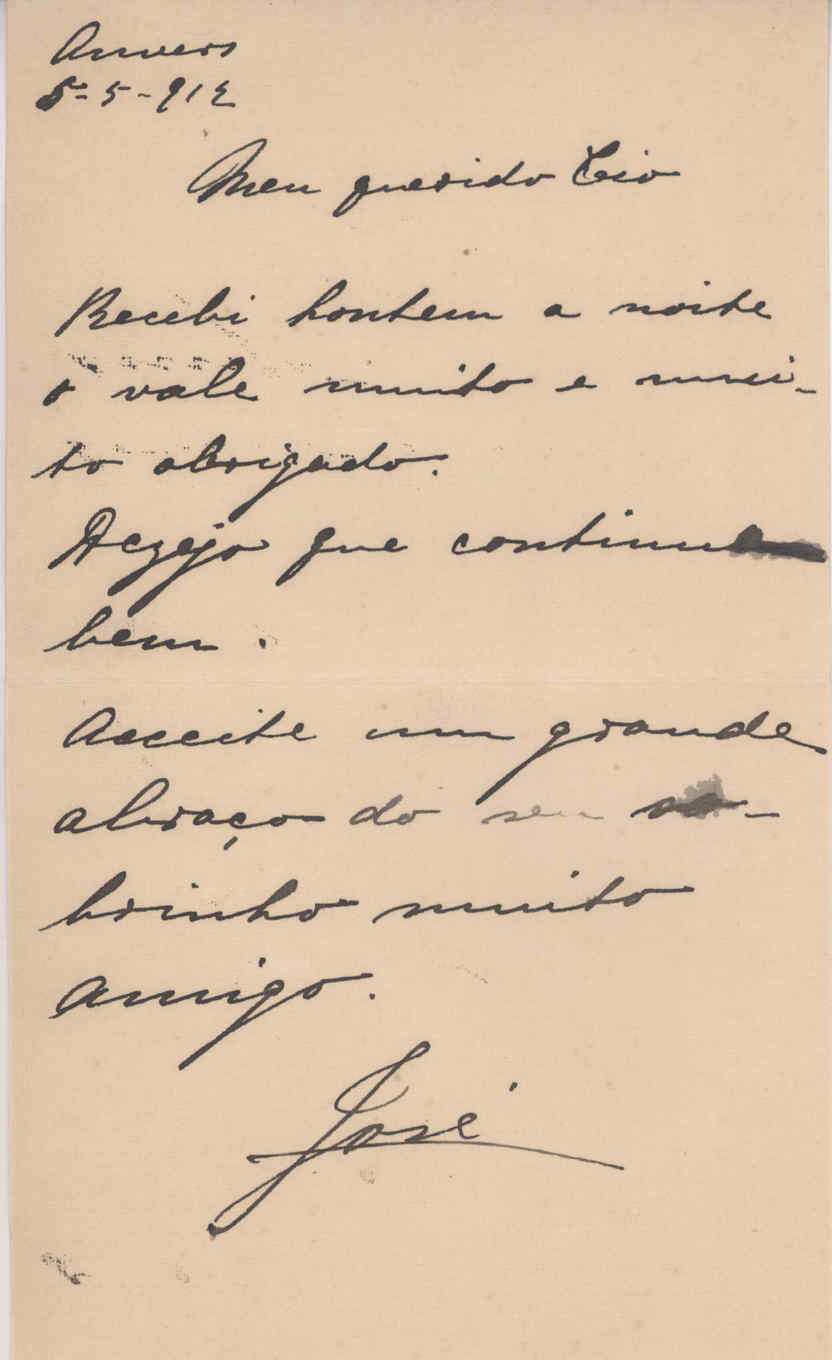 Anvers
5-5-912
Meu querido Tio
Recebi hontem a noite
o vale muito e mui-
to obrigado.
Dezejo que continue
bem.
Acceite um grande
abraço do seu so-
brinho muito
amigo.
José